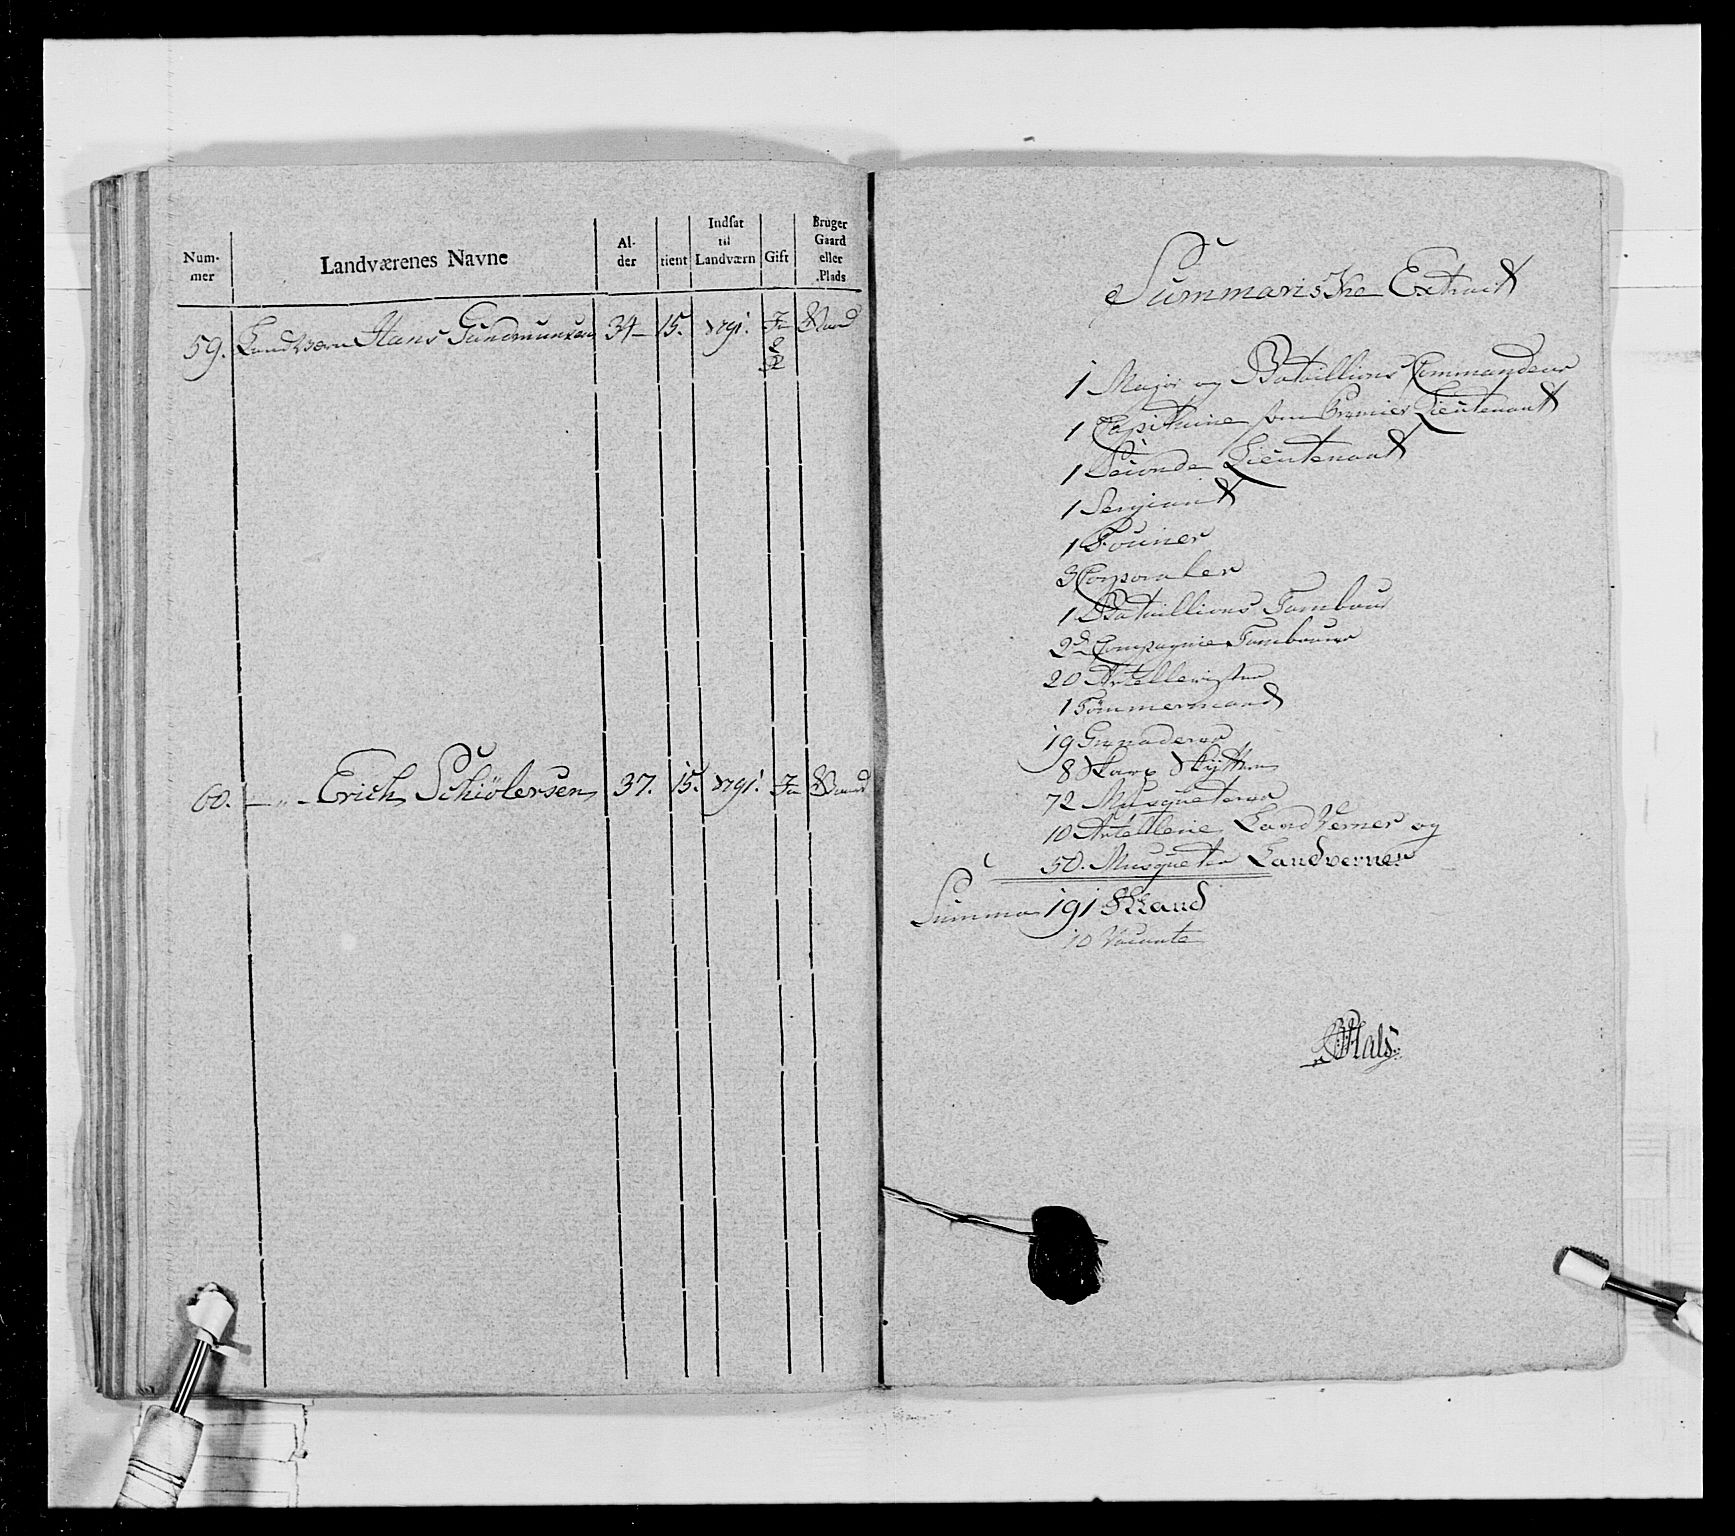 Num-
mer
Landværenes Navne
Al-
der
tient
Indsat
til
Landværn
Gift
Bruger
Gaard
eller
Plads
59. Landværn Hans Gundmunsen 34 15. 1791. Ja
60. — „ — Erich Schiölersen 37. 15. 1791. Ja
Summariske Extract
1 Major og Bataillions Commandeur
1 Capithine som Premier Lieutenant
1 Seconde Lieutenant
1 Sergiant
1 Fourier
3 Corporaler
1 Bataillions Tambour
2 Compagnie Tambourer
20 Artellerister
1 Tømmermand
19 Grenaderer
8 Skarp Skytter
72 Musqueterer
10 Artellerie Landverner og
50. Musqueter Landverner
Summa 191 Mand
10 Vacante